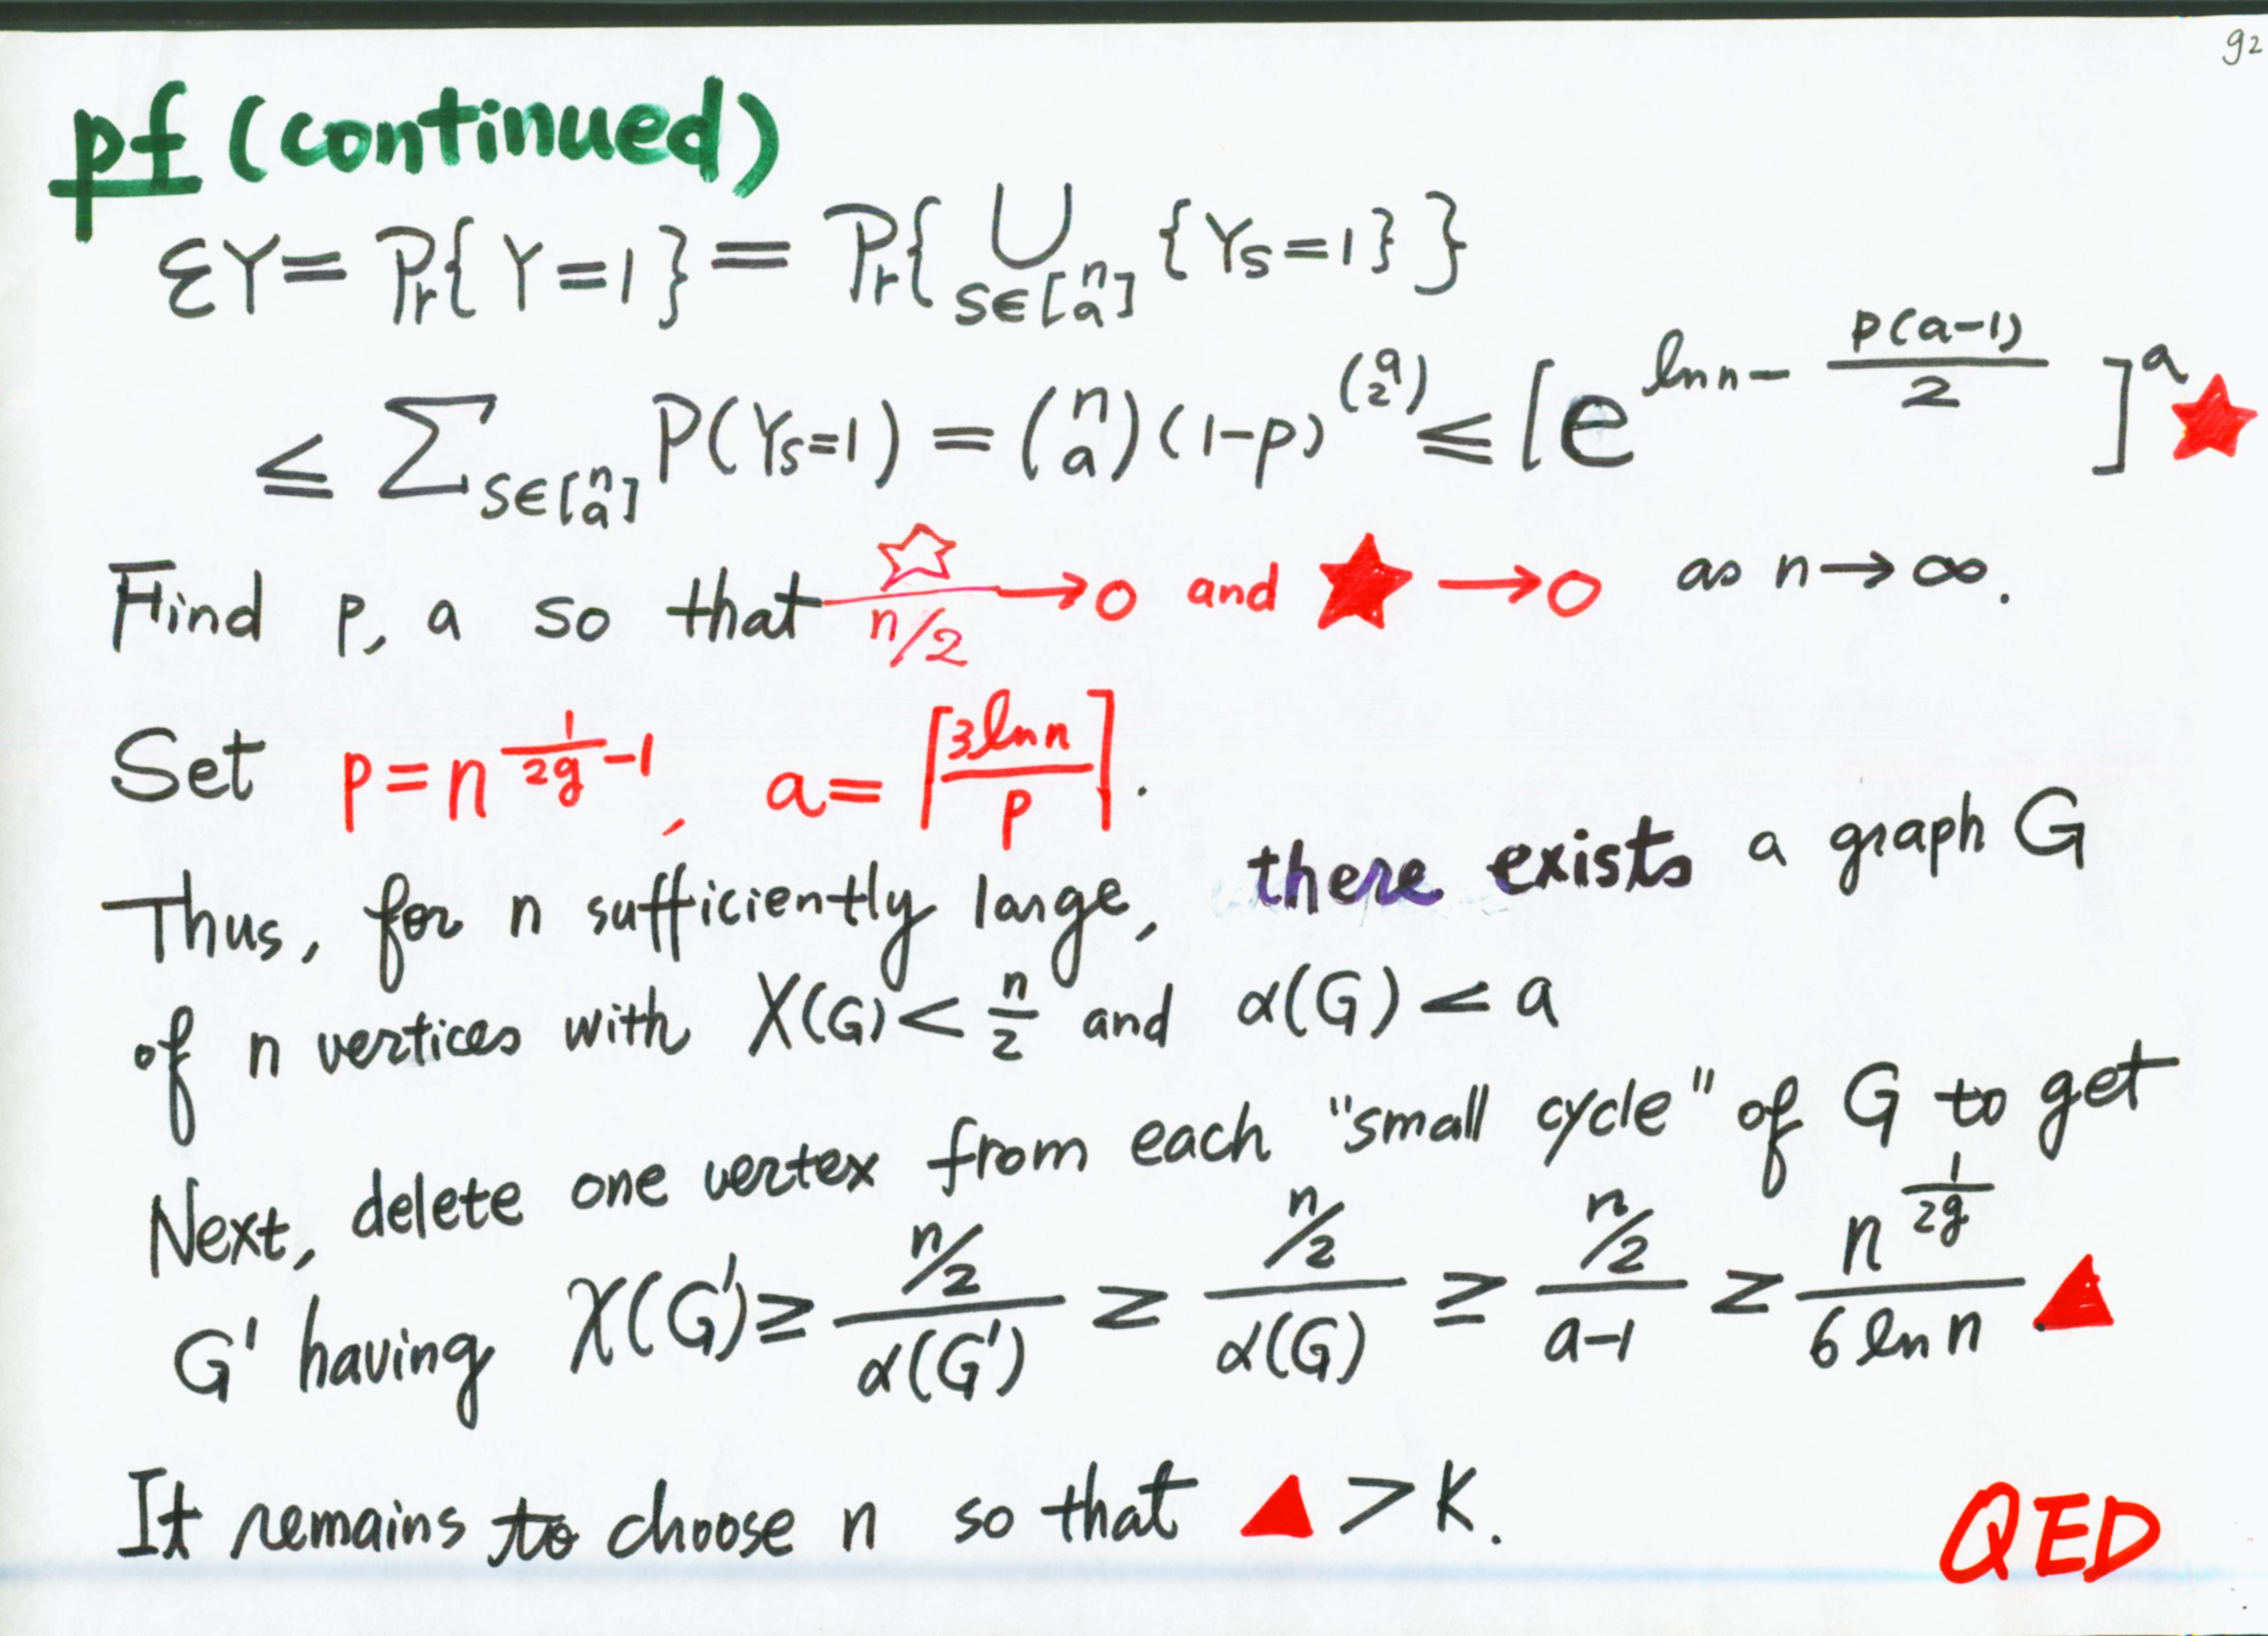 g2
pf (continued)
εY = Pr{Y=1} = Pr{ ⋃_{S∈[n a]} {Y_S=1} }
≤ Σ_{S∈[n a]} P(Y_S=1) = (n a)(1-p)^{(a 2)} ≤ [e^{ln n - p(a-1)/2}]^a ★
Find p, a so that ☆/(n/2) → 0 and ★ → 0 as n → ∞.
Set p = n^{1/2g - 1}, a = ⌈3 ln n / p⌉.
Thus, for n sufficiently large, there exists a graph G
of n vertices with X(G) < n/2 and α(G) < a
Next, delete one vertex from each "small cycle" of G to get
G' having χ(G') ≥ (n/2)/α(G') ≥ (n/2)/α(G) ≥ (n/2)/(a-1) ≥ n^{1/2g}/(6 ln n) ▲
It remains to choose n so that ▲ > K.
QED